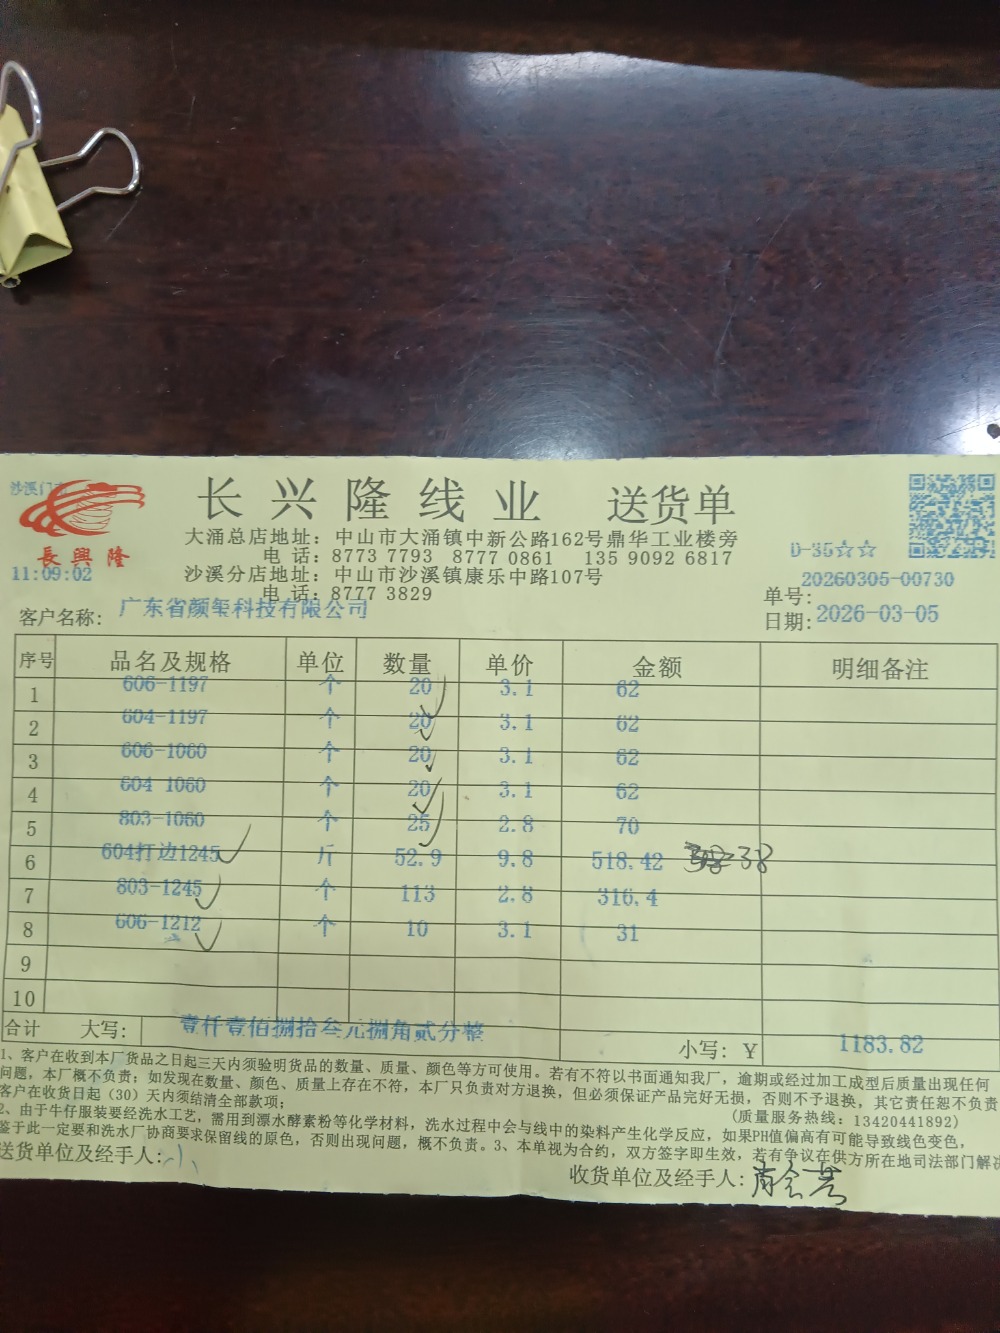 沙溪门
長興隆
11:09:02
长兴隆线业 送货单
大涌总店地址：中山市大涌镇中新公路162号鼎华工业楼旁
电 话：8773 7793 8777 0861 135 9092 6817
沙溪分店地址：中山市沙溪镇康乐中路107号
电 话：8777 3829
D-35☆☆
单号：20260305-00730
客户名称：广东省颜玺科技有限公司
日期：2026-03-05
序号 品名及规格 单位 数量 单价 金额 明细备注
1 606-1197 个 20 3.1 62
2 604-1197 个 20 3.1 62
3 606-1060 个 20 3.1 62
4 604-1060 个 20 3.1 62
5 803-1060 个 25 2.8 70
6 604打边1245 斤 52.9 9.8 518.42 38
7 803-1245 个 113 2.8 316.4
8 606-1212 个 10 3.1 31
9
10
合计 大写： 壹仟壹佰捌拾叁元捌角贰分整 小写：￥ 1183.82
1、客户在收到本厂货品之日起三天内须验明货品的数量、质量、颜色等方可使用。若有不符以书面通知我厂，逾期或经过加工成型后质量出现任何
问题，本厂概不负责；如发现在数量、颜色、质量上存在不符，本厂只负责对方退换，但必须保证产品完好无损，否则不予退换，其它责任恕不负责
客户在收货日起（30）天内须结清全部款项；
(质量服务热线：13420441892)
2、由于牛仔服装要经洗水工艺，需用到漂水酵素粉等化学材料，洗水过程中会与线中的染料产生化学反应，如果PH值偏高有可能导致线色变色，
鉴于此一定要和洗水厂协商要求保留线的原色，否则出现问题，概不负责。3、本单视为合约，双方签字即生效，若有争议在供方所在地司法部门解决
送货单位及经手人：
收货单位及经手人：